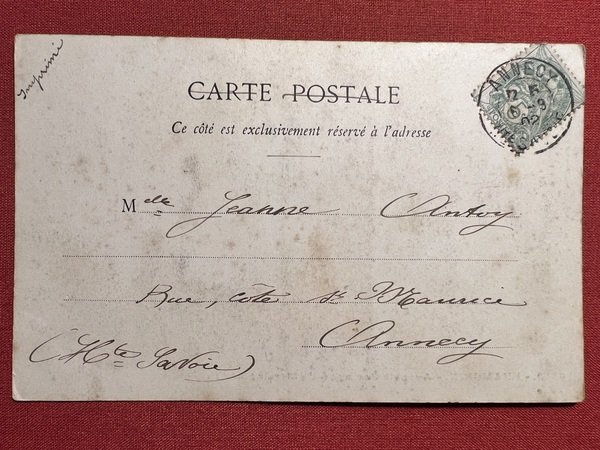 Imprimé
CARTE POSTALE
ANNECY
Ce côté est exclusivement réservé à l'adresse
Mdlle Jeanne Antoy
Rue, côte St Maurice
Annecy
(Hte Savoie)